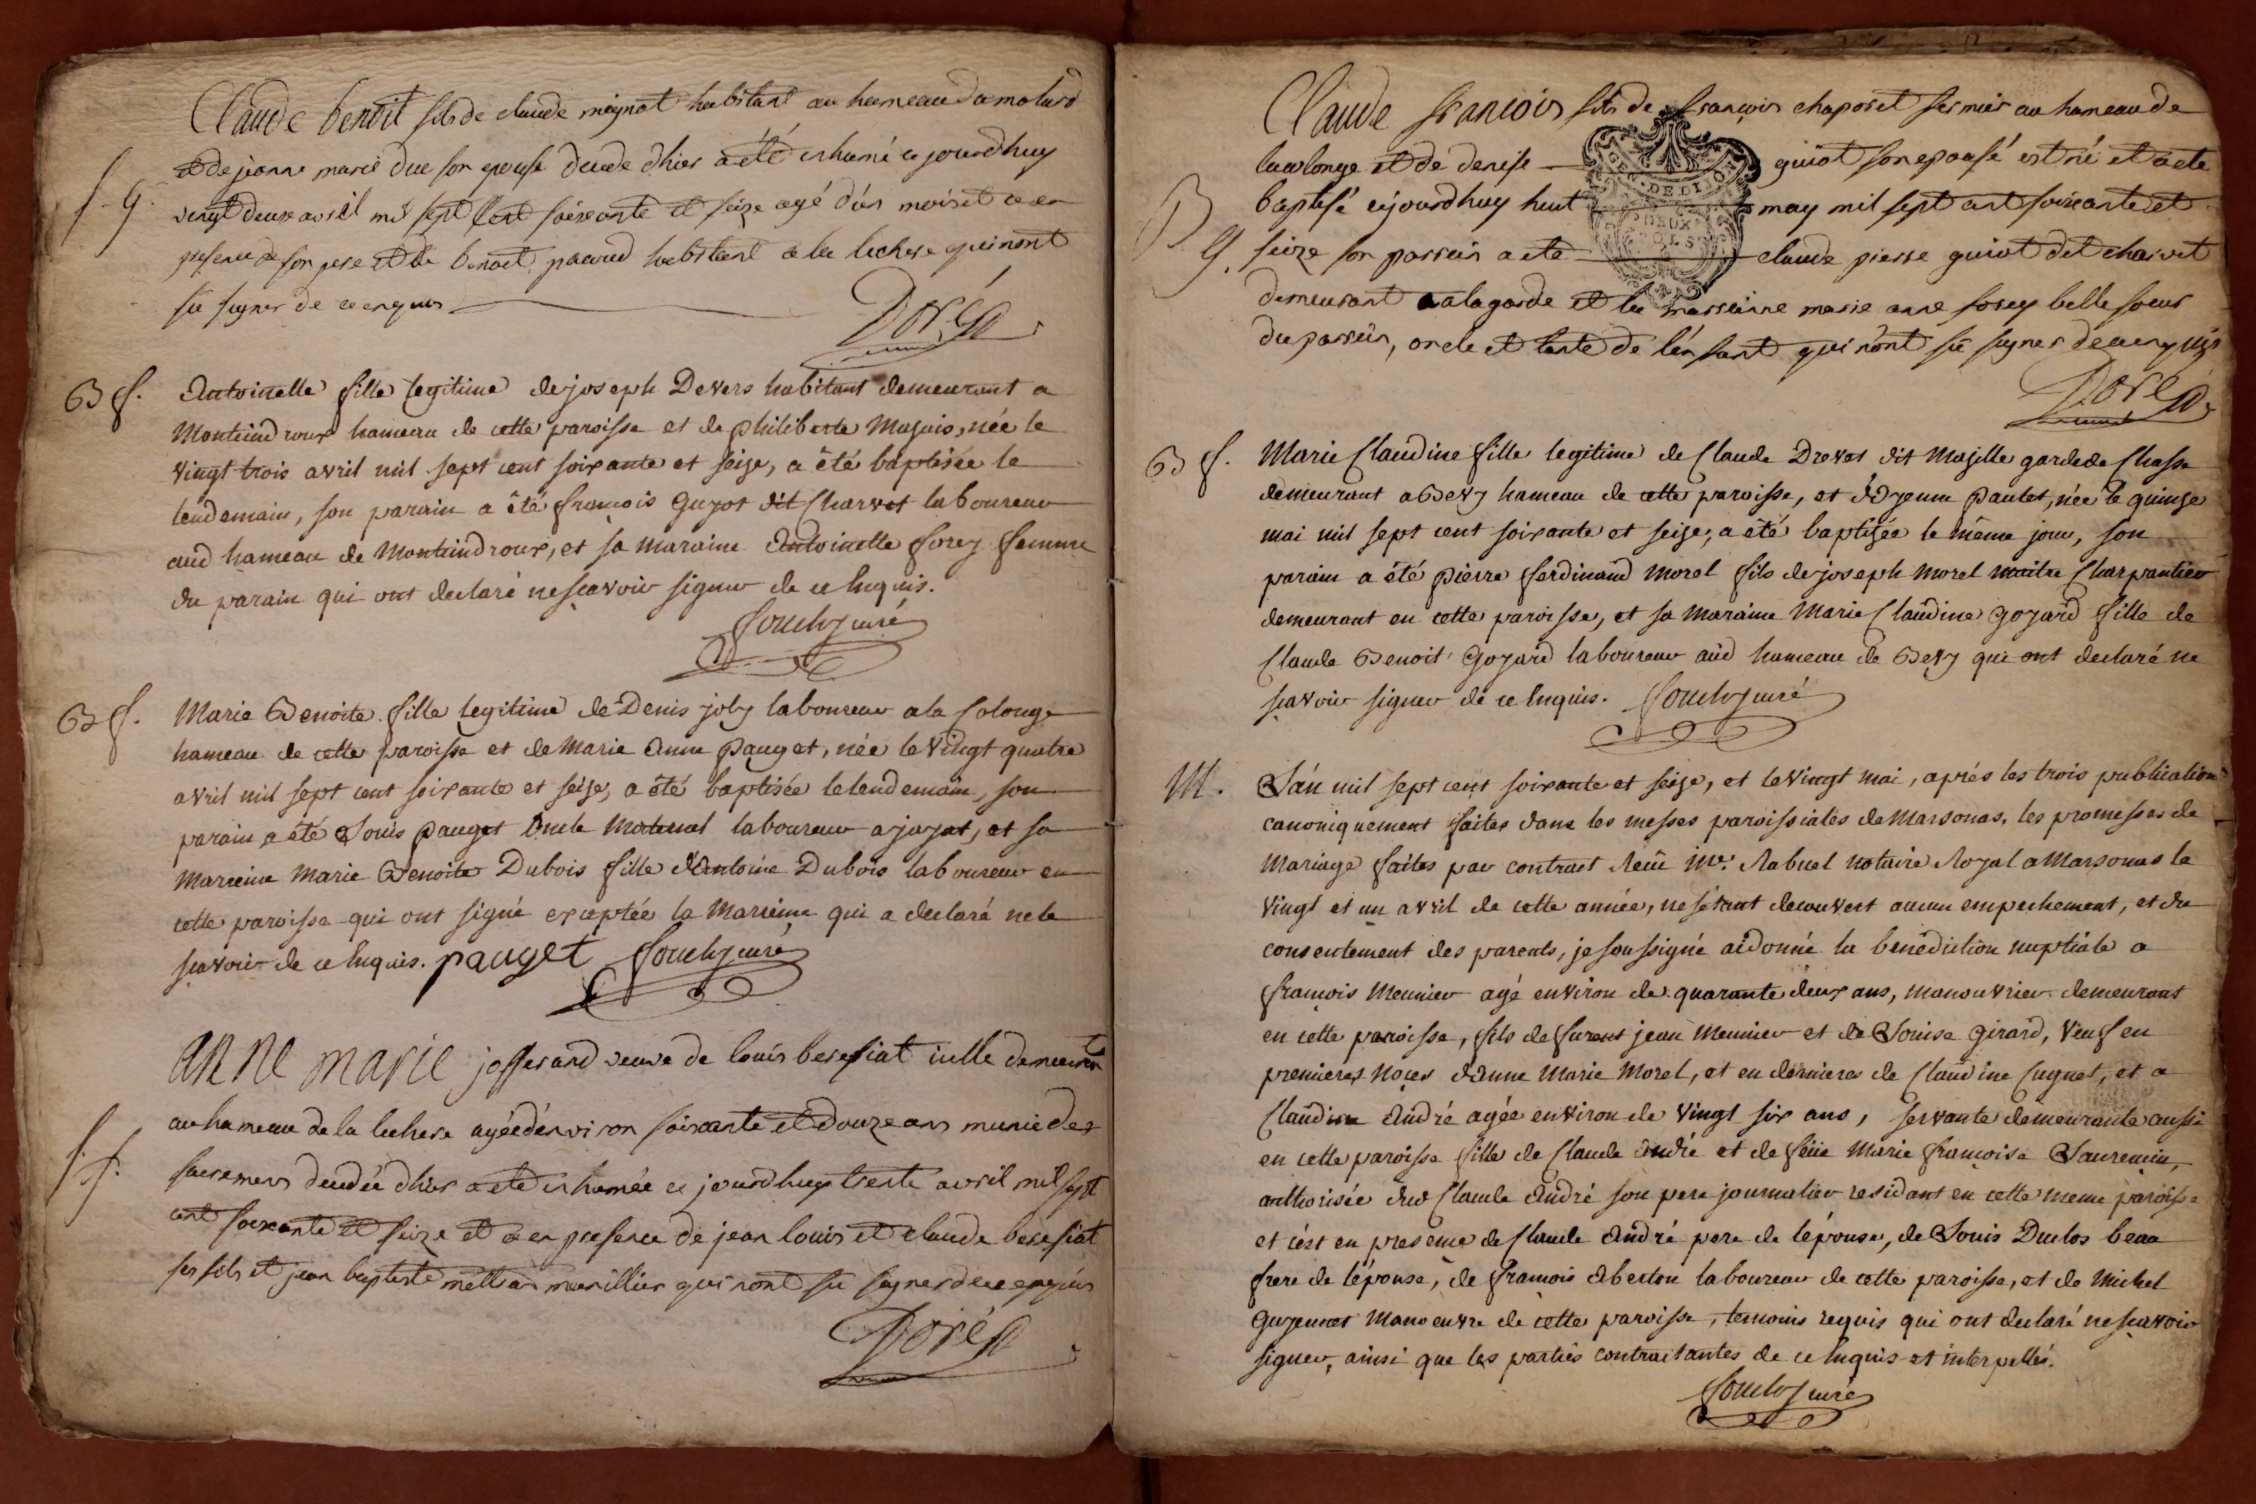 Claude benoit fils de claude mignot habitant au hameau du molard
et de jeanne marie duc son epouse decede d'hier a été inhumé ce jourdhuy
S. G.
vingt deux avril mil sept cent soixante et seize agé d'un mois et ce en
presence de son pere et de benoit pacoud habitant a la lechere qui n'ont
sû signer de ce enquis
Doré
B f.
Antoinette fille legitime de joseph Devers habitant demeurant a
Montindroux hameau de cette paroisse et de philiberte Mugnier, née le
vingt trois avril mil sept cent soixante et seize, a été baptisée le
lendemain, son parain a été françois Guyot dit Charvet laboureur
aud hameau de Montindroux, et sa maraine Antoinette forey femme
du parain qui ont declaré ne sçavoir signer de ce Enquis.
curé
B f.
Marie Benoite fille legitime de Denis joly laboureur a la Colonge
hameau de cette paroisse et de Marie Anne pauget, née le vingt quatre
avril mil sept cent soixante et seize, a été baptisée le lendemain, son
parain a été Louis pauget oncle Maternel laboureur a jayat, et sa
Maraine Marie Benoite Dubois fille d'Antoine Dubois laboureur en
cette paroisse qui ont signé exceptée la Maraine qui a declaré ne le
sçavoir de ce Enquis. pauget curé
Anne marie josserand veuve de louis berefiat demeurant
au hameau de la lechere agée d'environ soixante et douze ans munie des
S. f.
sacremens decedée d'hier a été inhumée ce jourdhuy trente avril mil sept
cent soixante et seize et ce en presence de jean louis et claude berefiat
ses fils et jean baptiste marillier qui n'ont sû signer de ce enquis
Doré
Claude françois fils de françois chaposet fermier au hameau de
la colonge et de denise guiot son epouse est né et a été
B
baptisé cejourdhuy huit may mil sept cent soixante et
G.
seize son parrain a été claude pierre guiot dit charvet
demeurant a la garde et la marrainne marie anne forey belle soeur
du parrain, oncle et tante de l'enfant qui n'ont sû signer de ce enquis
Doré
B f.
Marie Claudine fille legitime de Claude Drevet dit Majelle garde de Chasse
demeurant a Bevy hameau de cette paroisse, et d'Dyenne pautet, née le quinze
mai mil sept cent soixante et seize, a été baptisée le même jour, son
parain a été pierre ferdinand Morel fils de joseph Morel maitre Charpentier
demeurant en cette paroisse, et sa Maraine Marie Claudine Goyard fille de
Claude Benoit Goyard laboureur aud hameau de Bevy qui ont declaré ne
sçavoir signer de ce Enquis. curé
M.
L'an mil sept cent soixante et seize, et le vingt mai, aprés les trois publications
canoniquement faites dans les messes paroissiales de Marsonas, les promesses de
Mariage faites par contract Reçu Me. Rabuel notaire Royal a Marsonas le
vingt et un avril de cette année, ne s'étant decouvert aucun empechement, et du
consentement des parents, je soussigné ai donné la benédiction nuptiale a
françois Meunier agé environ de quarante deux ans, manouvrier demeurant
en cette paroisse, fils de furent jean Meunier et de Louise Girard, veuf en
premieres Noces d'Anne Marie Morel, et en dernieres de Claudine Cugnet, et a
Claudine André agée environ de vingt six ans, servante demeurante aussi
en cette paroisse fille de Claude André et de feüe Marie françoise Laurencin,
authorisée dud Claude André son pere journalier residant en cette meme paroisse
et c'est en presence de Claude André pere de l'épouse, de Louis Duclos beau
frere de l'épouse, de françois Aberton laboureur de cette paroisse, et de Michel
Guyennet Manoeuvre de cette paroisse, temoins requis qui ont declaré ne sçavoir
signer, ainsi que les parties contractantes de ce Enquis et interpellés.
curé